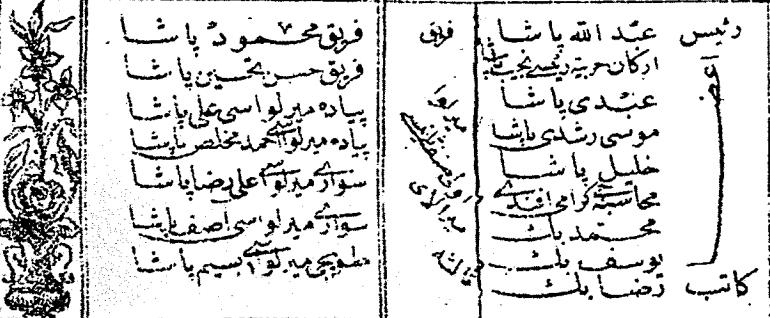 رئیس عبد الله پاشا فریق
اعضا
ارکان حربیه رئیسی نجیب پاشا
عبدی پاشا
موسی رشدی پاشا
خلیل پاشا
محاسبه‌جی کرامی افندی
محمد بك
یوسف بك
کاتب رضا بك
فریق محمود پاشا
فریق حسن تحسین پاشا
پیاده میرلواسی علی پاشا
پیاده میرلواسی محمد مخلص پاشا
سواری میرلواسی علی رضا پاشا
سواری میرلواسی آصف پاشا
طوپجی میرلواسی نسیم پاشا